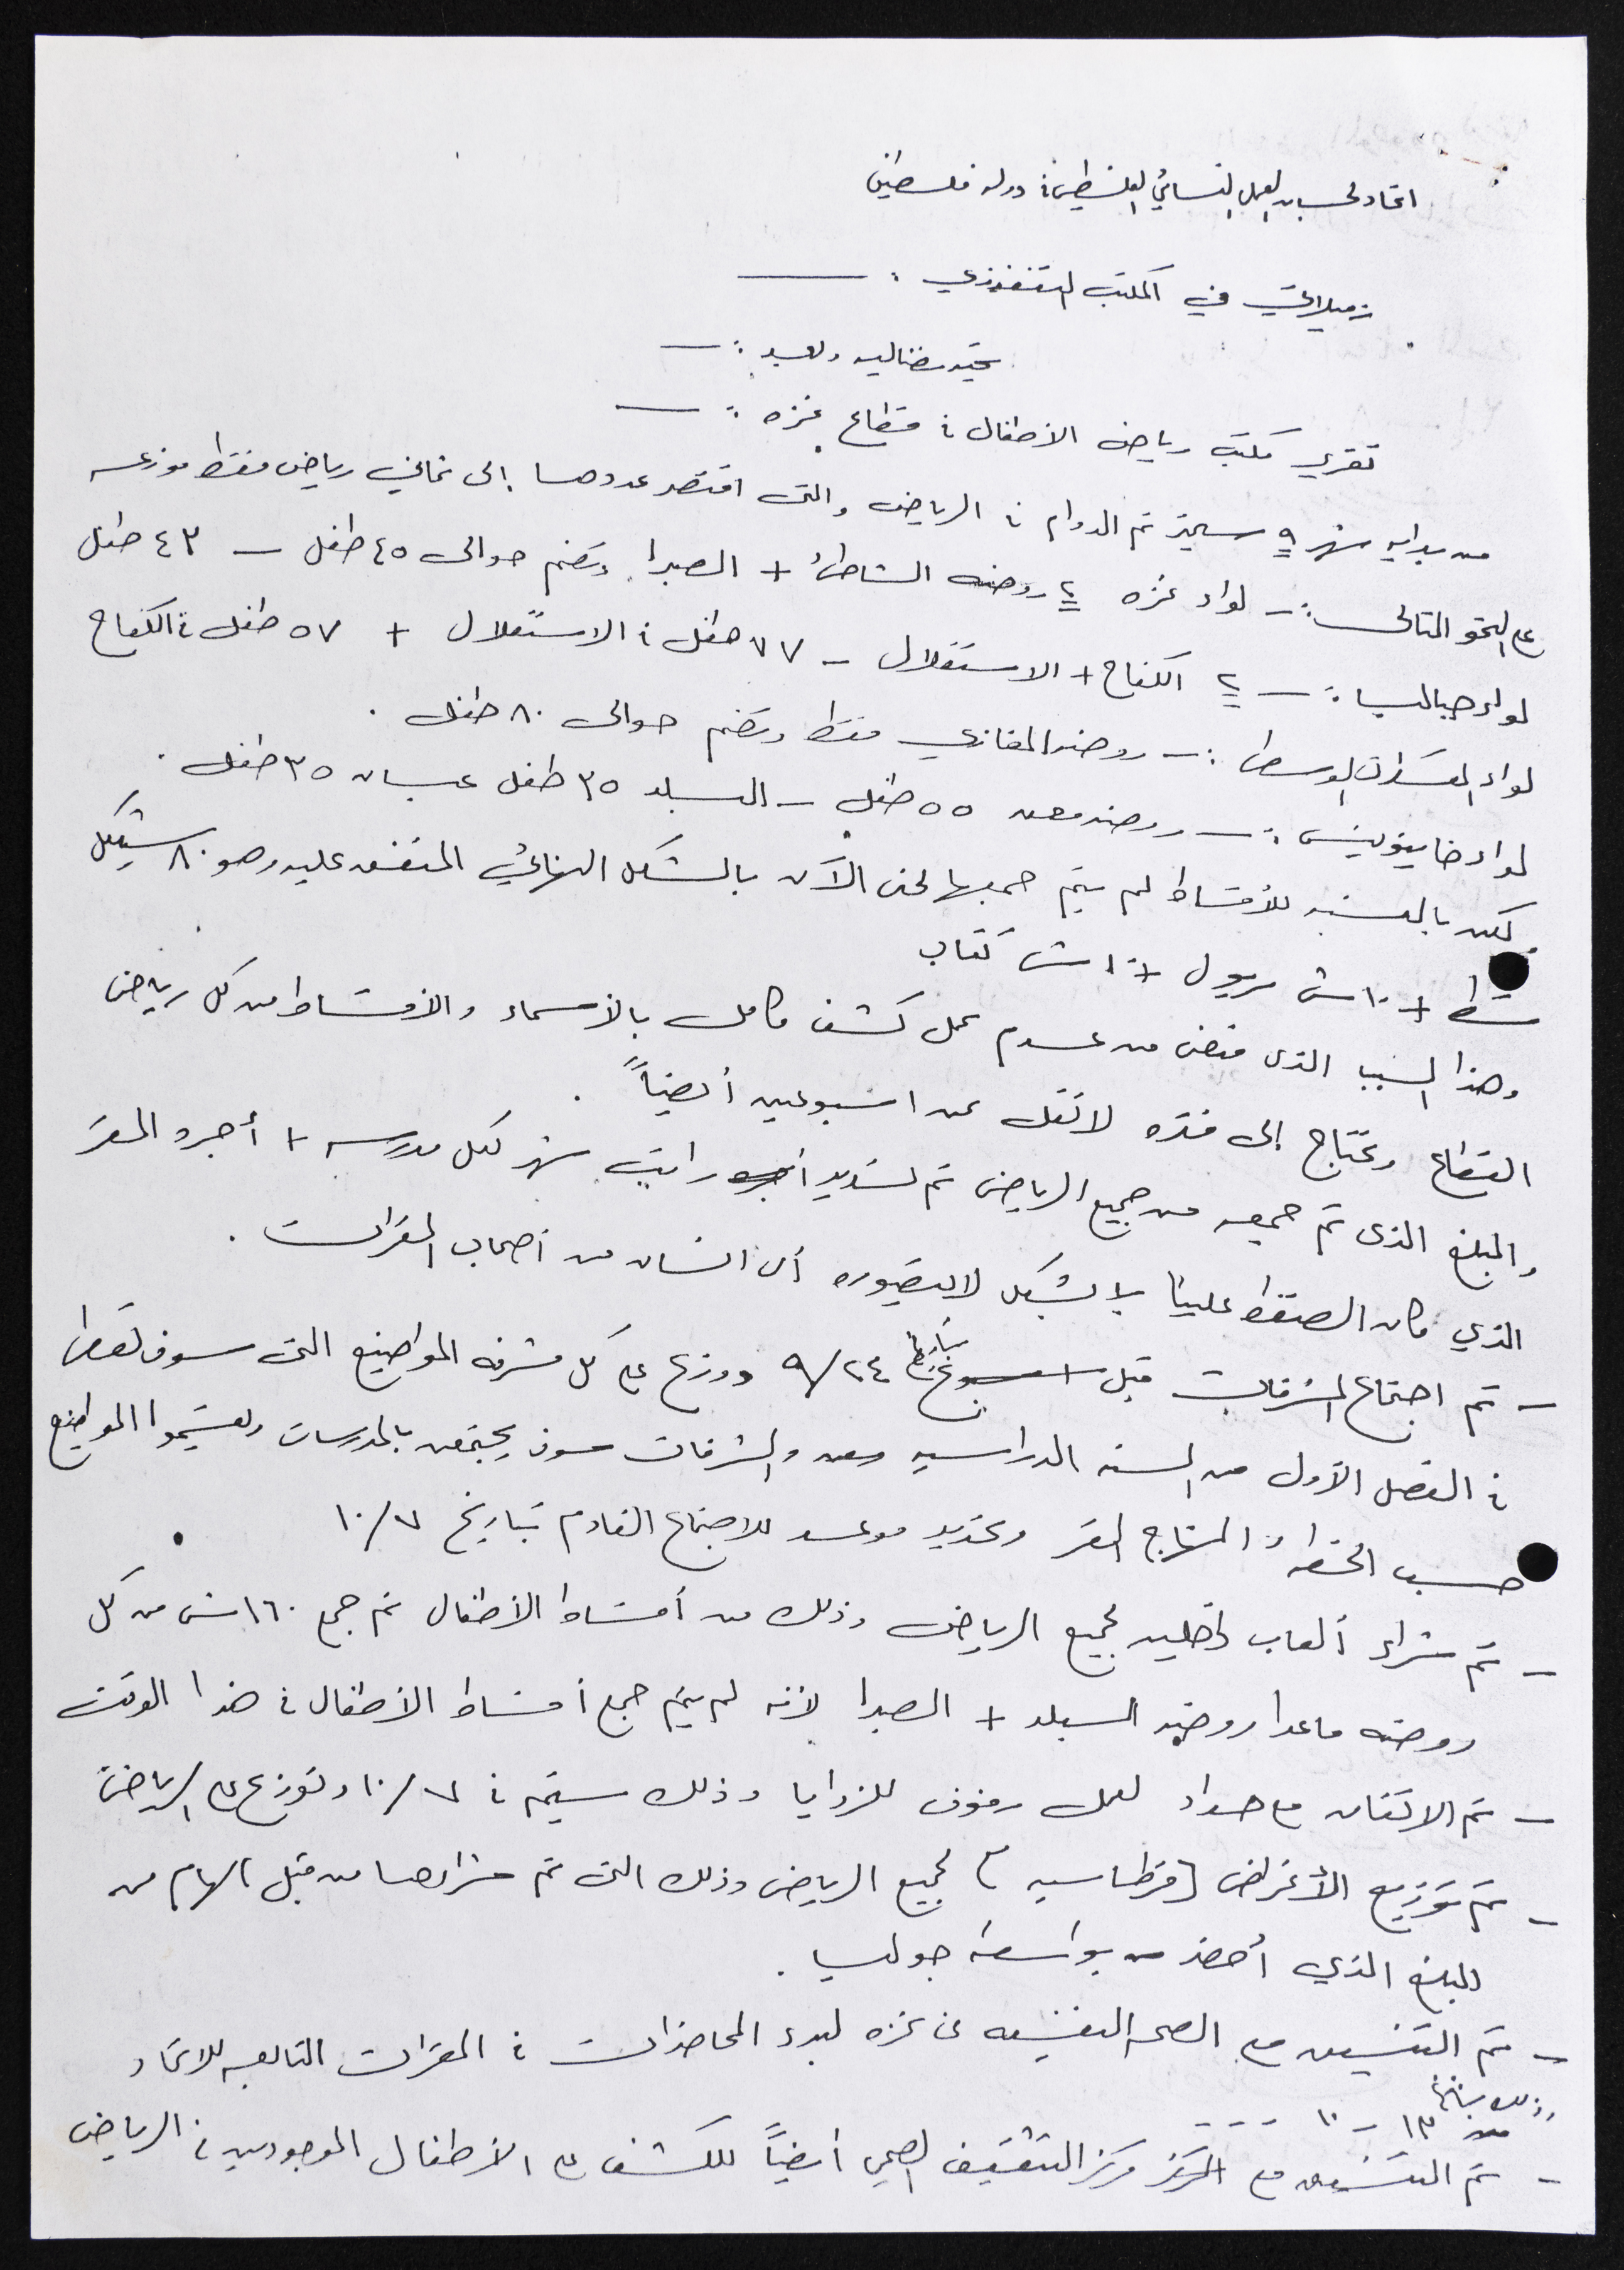 اتحاد لجان العمل النسائي الفلسطيني في دولة فلسطين
زميلاتي في المكتب التنفيذي :ــ
تحية نضاليه وبعد :ــ
تقرير مكتب رياض الأطفال في قطاع غزه :ــ
من بدايه شهر ٩ سبتمبر تم الدوام في الرياض والتى اقتصر عددهما إلى ثماني رياض فقط موزعه
على النحو التالى :ــ لواء غزه ٢ روضه الشاطئ + الصبرا وتضم حوالى ٤٥ طفل ــ ٤٣ طفل
لواء جباليا :ــ ٢ الكفاح + الاستقلال ــ ٧٧ طفل في الاستقلال + ٥٧ طفل في الكفاح
لواء المعسكرات الوسطى :ــ روضة المغازي فقط وتضم حوالى ٨٠ طفل .
لواء خانيونس :ــ روضة معن ٥٥ طفل ــ البلد ٣٥ طفل عبسان ٣٥ طفل .
لكن بالنسبه للأقساط لم يتم جمعها لحتى الآن بالشكل النهائي المتفق عليه وهو ٨٠ شيكل
قسط + ١٠ ش مريول + ١٠ ش كتاب
وهذا السبب الذى من عدم عمل كشف كامل بالأسماء والأقساط من كل رياض
القطاع ونحتاج إلى فتره لا تقل عن اسبوعين أيضاً .
والمبلغ الذى تم جمعه من جميع الرياض تم تسديد راتب شهر لكل مدرسه + أجرد المقر
الذي كان الضغط علينا بالشكل لا يتصوره أى انسان من أصحاب المقرات .
ــ تم اجتماع المشرفات قبل بتاريخ ٩/٢٤ ووزع على كل مشرفه المواضيع التى سوف تعطى
في الفصل الأول من السنه الدراسيه والمشرفات سوف يجتمعن بالمدرسات ويقسموا المواضيع
حسب الخطه والمنهاج المقر وتحديد موعد للاجتماع القادم بتاريخ ١٠/٧
ــ تم شراء ألعاب داخليه لجميع الرياض وذلك من أقساط الأطفال تم جمع ١٦٠ ش من كل
روضه ماعدا روضة البلد + الصبرا لأنه لم يتم جمع أقساط الأطفال في هذا الوقت
ــ تم الاتفاق مع حداد لعمل رفوف للزوايا وذلك سيتم في ١٠/٧ وتوزع على الرياض
ــ تم توزيع الأغراض (قرطاسيه) لجميع الرياض وذلك التى تم شراءها من قبل الهام من
المبلغ الذي أحضر بواسطة جوليا .
ــ تم التنسيق مع الصحه النفسيه في غزه لبدء المحاضرات في المقرات التابعه للاتحاد
وذلك بتاريخ ١٣ ــ ١٠ ــ ــ ــ
ــ تم التنسيق مع مركز التثقيف الصحي أيضاً للكشف على الأطفال الموجودين في الرياض